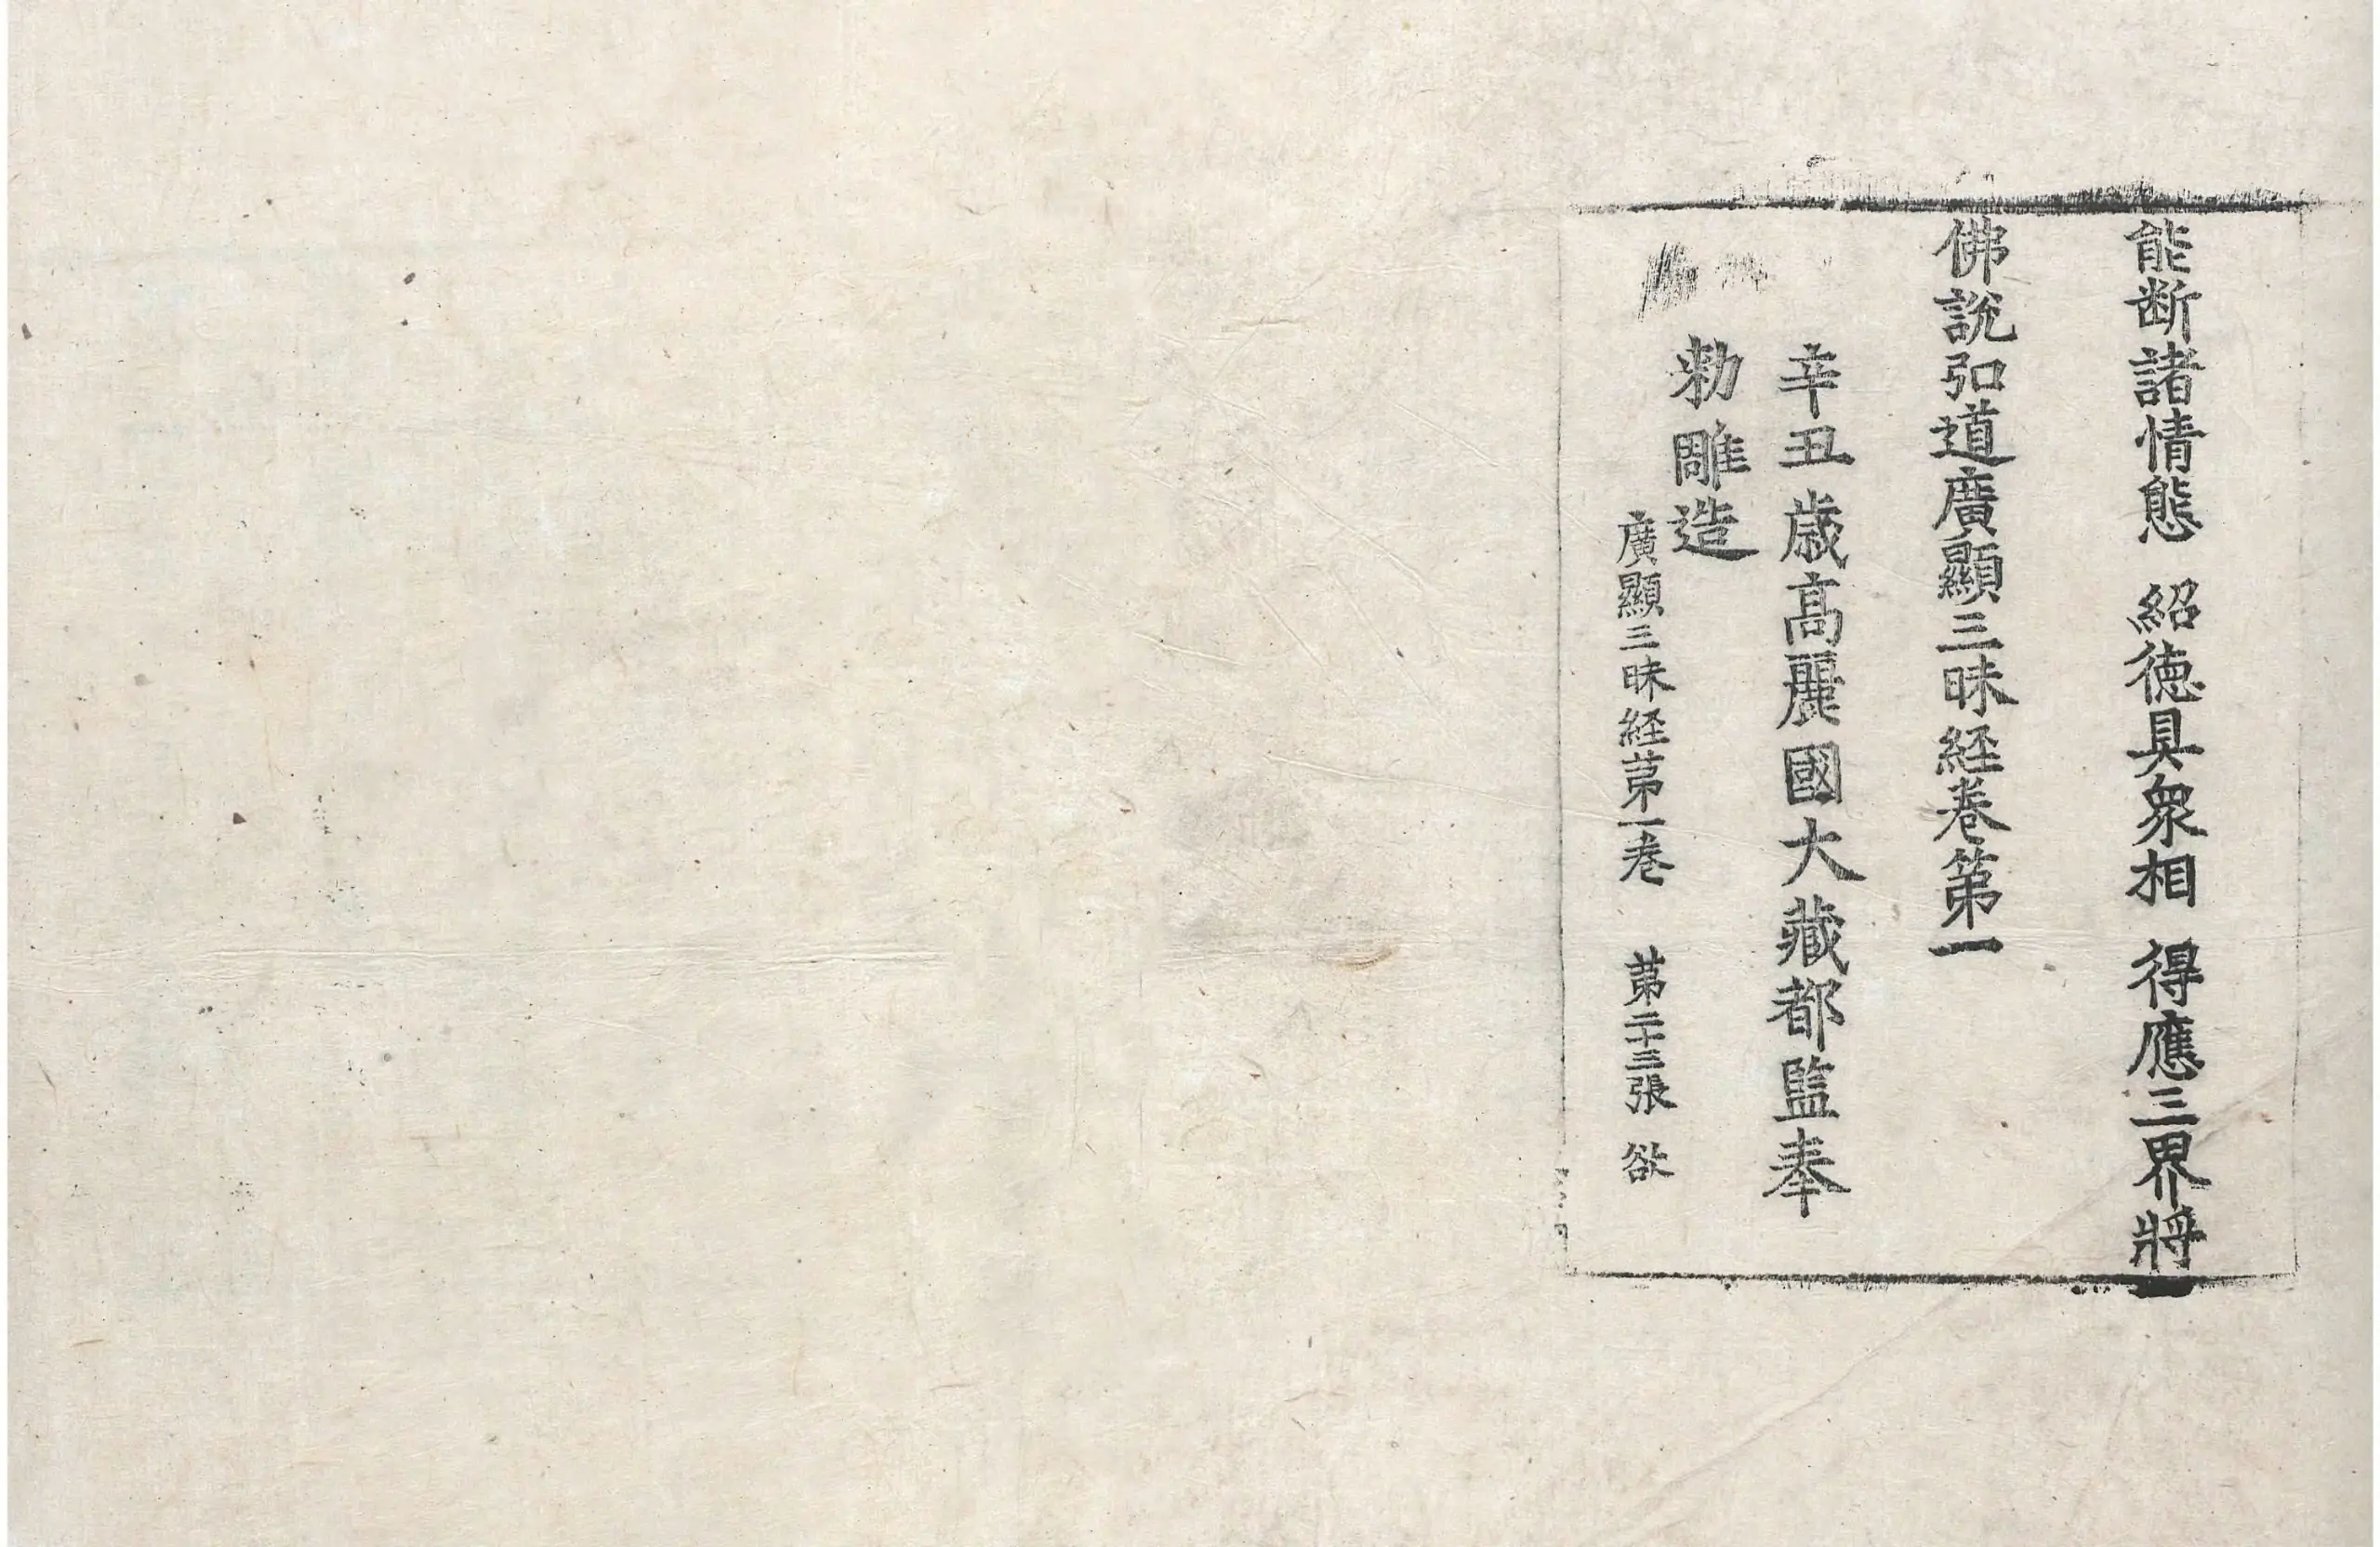 能断諸情態 紹德具衆相 得應三界將
佛說弘道廣顯三昧経卷第一
辛丑歲高麗國大藏都監奉
勅雕造
廣顯三昧経苐一卷 苐二十三張 欲